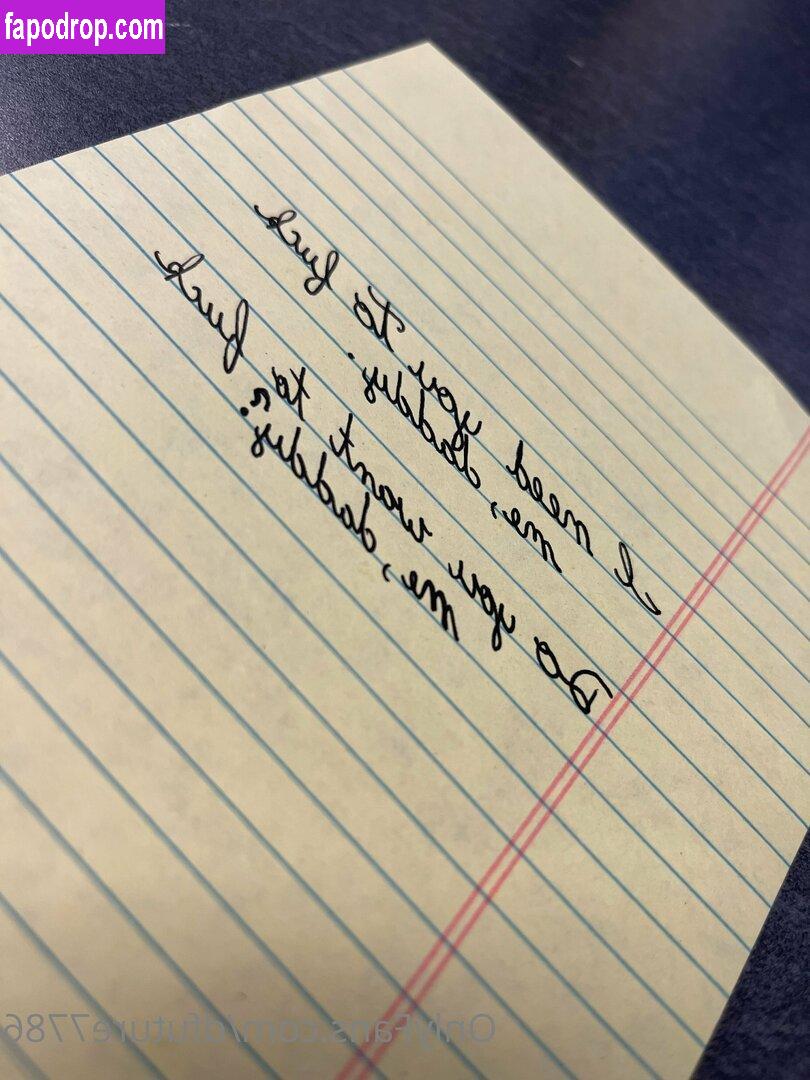 fapodrop.com
I need you to fuck
me, daddy.
Do you want to fuck
me, daddy?
OnlyFans.com/dfuture7786